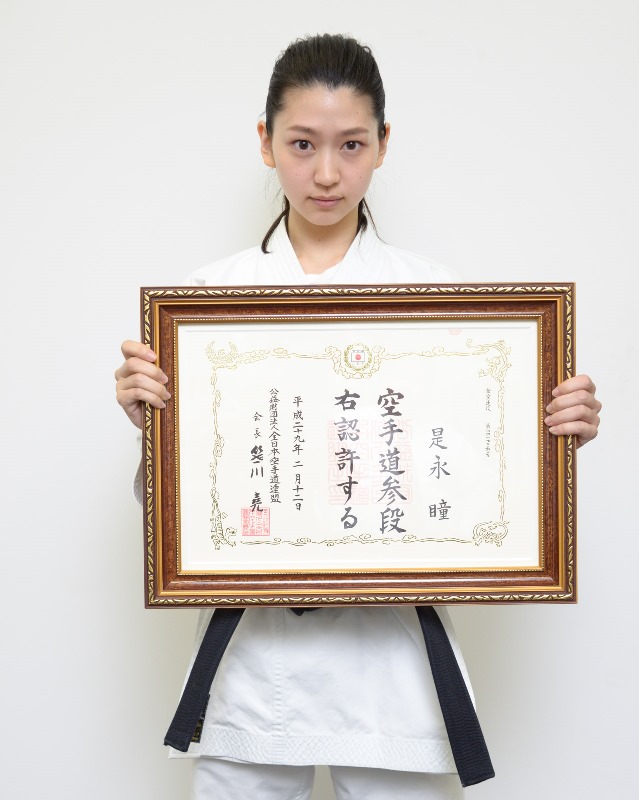 是永　瞳
空手道参段
右認許する
平成二十九年二月十二日
公益財団法人全日本空手道連盟
会長　笹川　堯